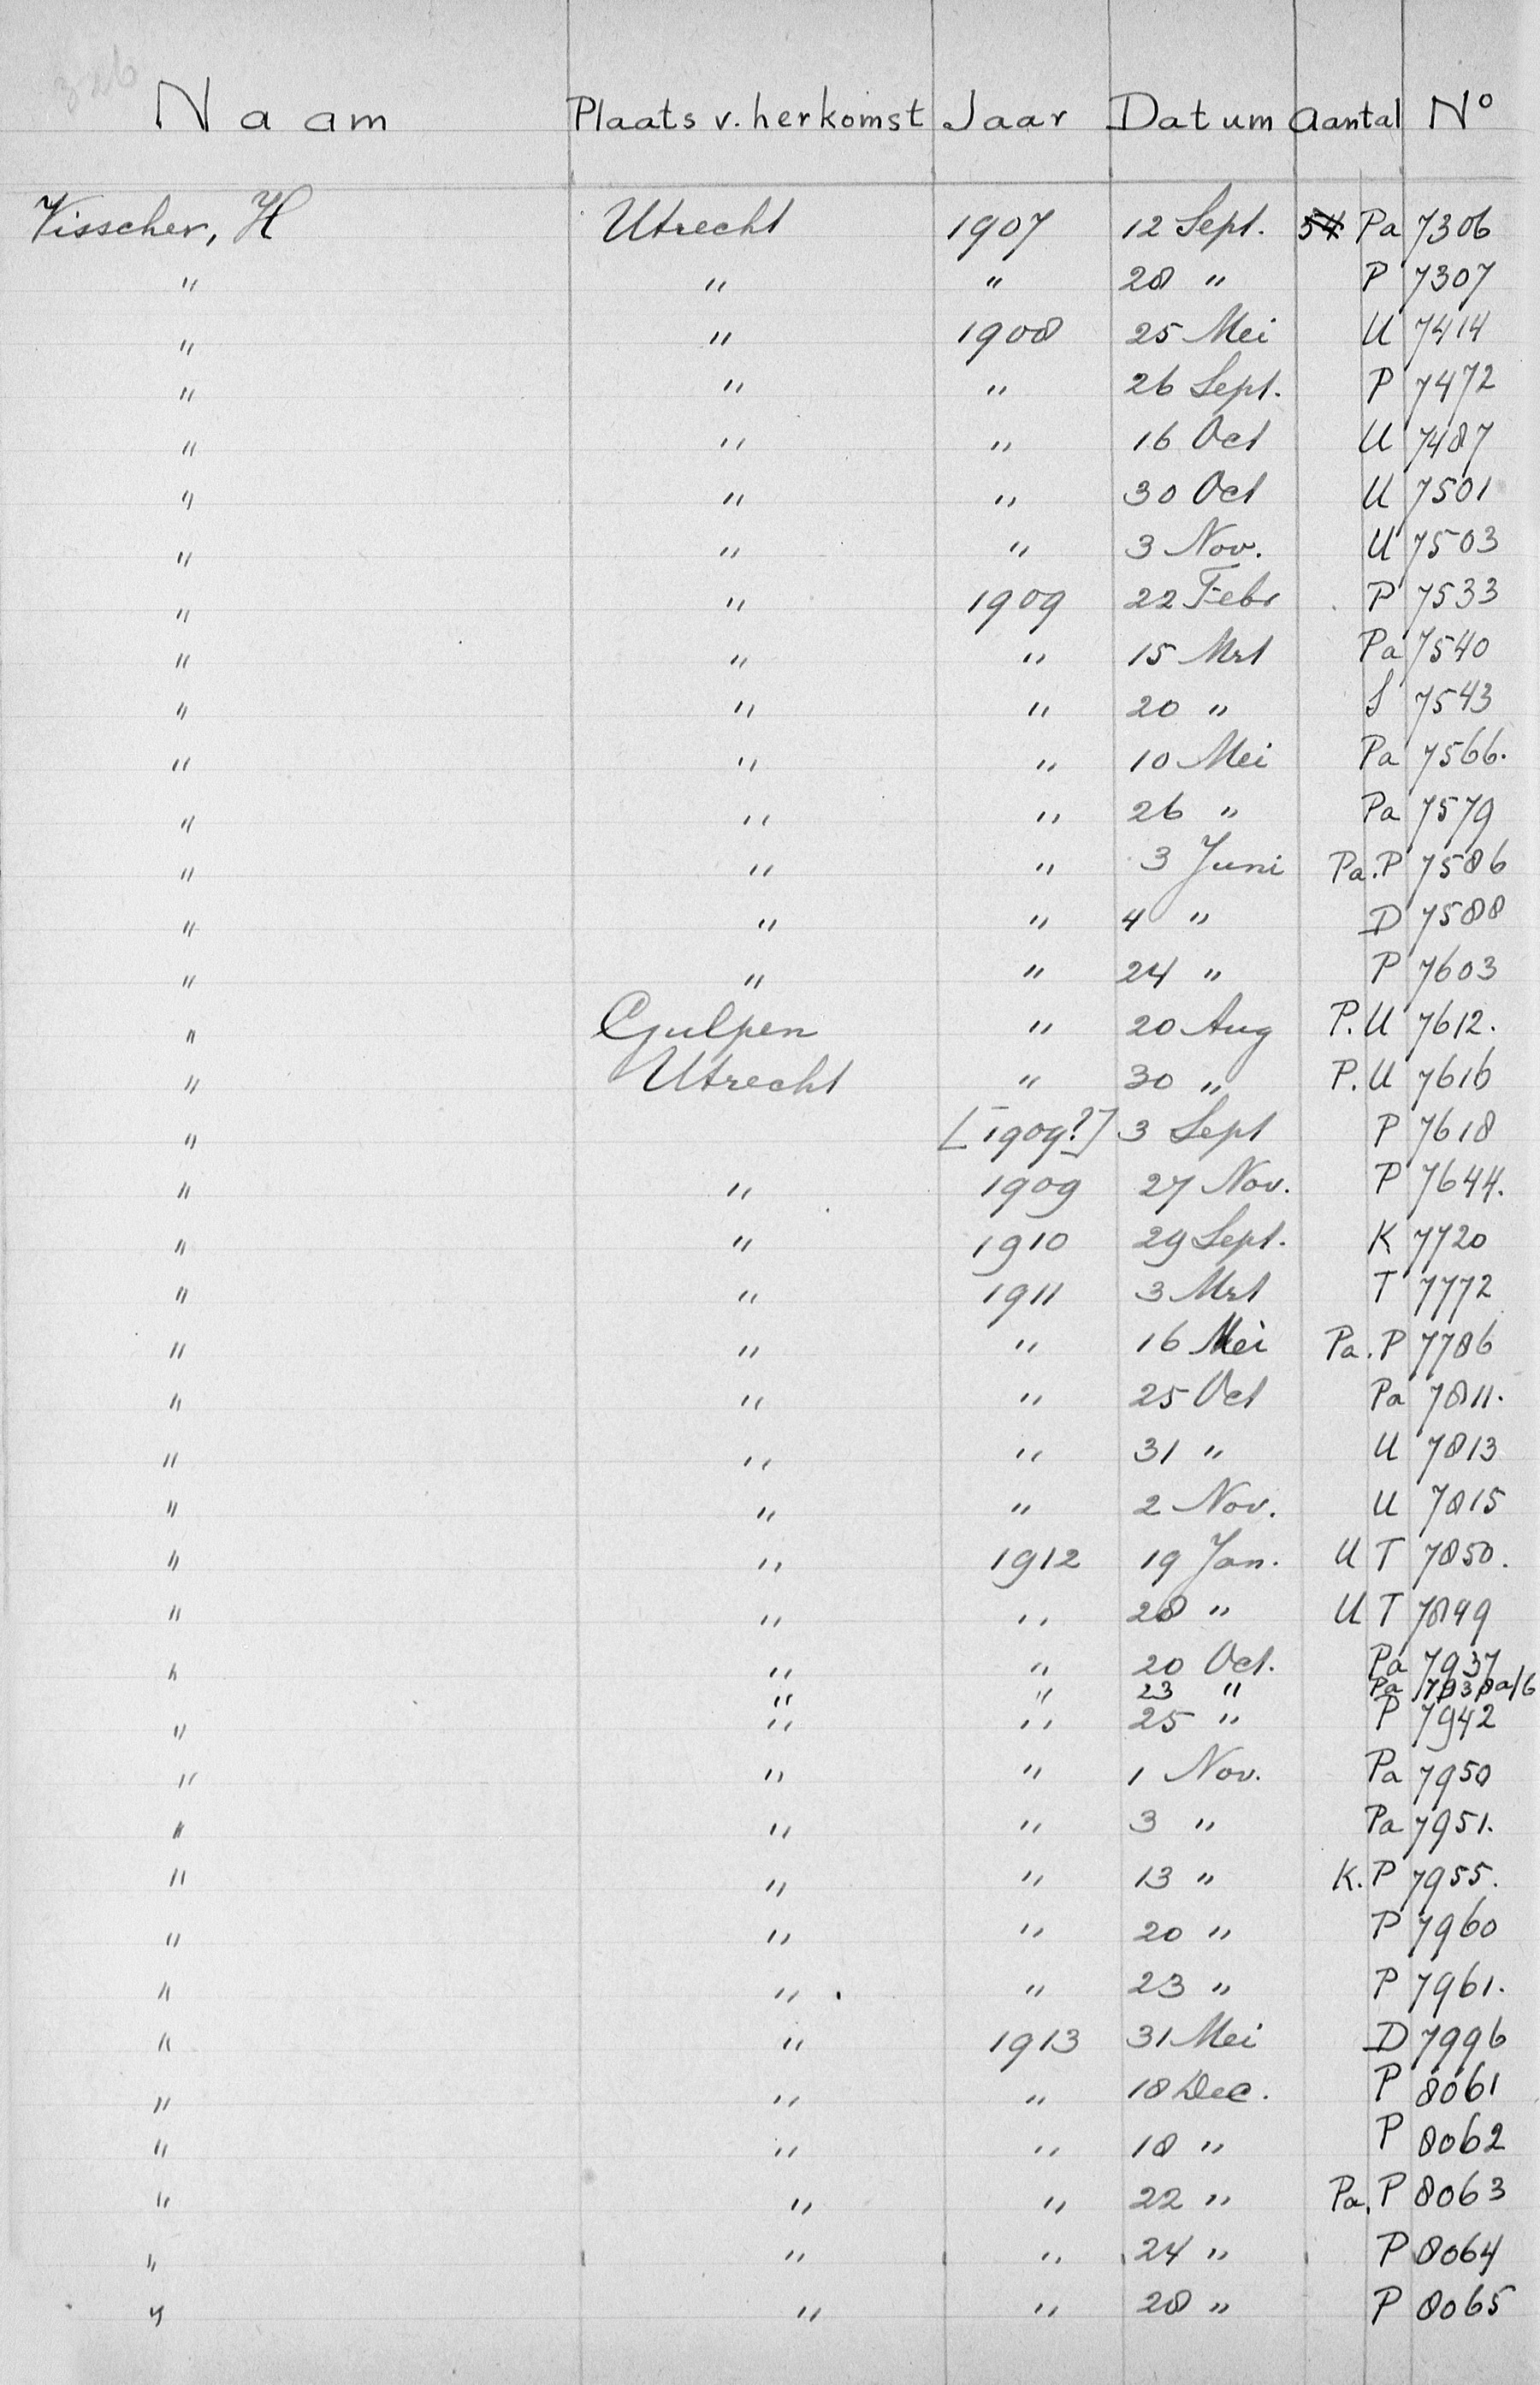 Naam Plaats v. herkomst Jaar Datum Aantal No
Visscher, H Utrecht 1907 12 Sept. 54 Pa 7306
" " " 28 " P 7307
" " 1908 25 Mei U 7414
" " " 26 Sept. P 7472
" " " 16 Oct U 7487
" " " 30 Oct U 7501
" " " 3 Nov. U 7503
" " 1909 22 Febr P 7533
" " " 15 Mrt Pa 7540
" " " 20 " S 7543
" " " 10 Mei Pa 7566.
" " " 26 " Pa 7579
" " " 3 Juni Pa.P 7586
" " " 4 " D 7588
" " " 24 " P 7603
" Gulpen " 20 Aug P.U 7612.
" Utrecht " 30 " P.U 7616
" [1909?] 3 Sept P 7618
" " 1909 27 Nov. P 7644.
" " 1910 29 Sept. K 7720
" " 1911 3 Mrt T 7772
" " " 16 Mei Pa.P 7786
" " " 25 Oct Pa 7811.
" " " 31 " U 7813
" " " 2 Nov. U 7815
" " 1912 19 Jan. U T 7850.
" " " 28 " U T 7899
" " " 20 Oct. Pa 7937
" " 23 " Pa
" " " 25 " P 7942
" " " 1 Nov. Pa 7950
" " " 3 " Pa 7951.
" " " 13 " K.P 7955.
" " " 20 " P 7960
" " " 23 " P 7961.
" " 1913 31 Mei D 7996
" " " 18 Dec. P 8061
" " " 18 " P 8062
" " " 22 " Pa.P 8063
" " " 24 " P 8064
" " " 28 " P 8065